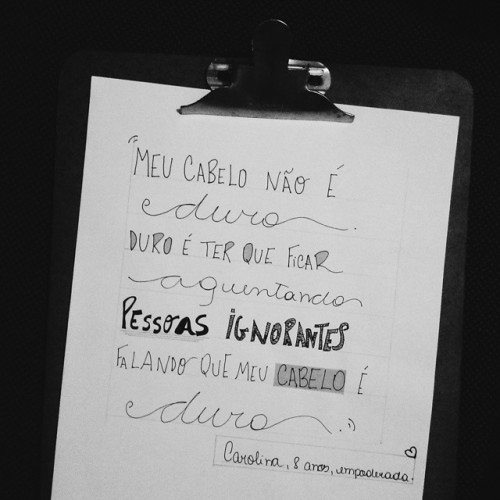 "MEU CABELO NÃO É
duro.
DURO É TER QUE FICAR
aguentando
PESSOAS IGNORANTES
FALANDO QUE MEU CABELO É
duro."
Carolina, 8 anos, empoderada.